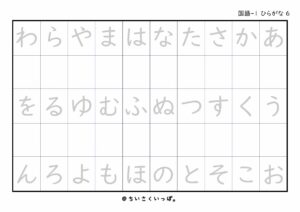 国語-1 ひらがな 6
わらやまはなたさかあ
をるゆむふぬつすくう
んろよもほのとそこお
@ちいさくいっぽ。